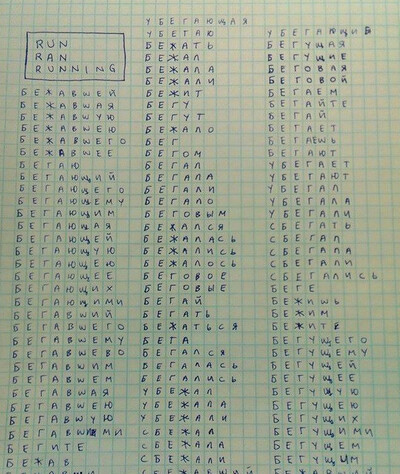 RUN
RAN
RUNNING
БЕЖАВШЕЙ
БЕЖАВШАЯ
БЕЖАВШУЮ
БЕЖАВШЕЮ
БЕЖАВШЕГО
БЕЖАВШЕЕ
БЕГАЮ
БЕГАЮЩИЙ
БЕГАЮЩЕГО
БЕГАЮЩЕМУ
БЕГАЮЩИМ
БЕГАЮЩАЯ
БЕГАЮЩЕЙ
БЕГАЮЩУЮ
БЕГАЮЩЕЮ
БЕГАЮЩЕЕ
БЕГАЮЩИХ
БЕГАЮЩИМИ
БЕГАВШИЙ
БЕГАВШЕГО
БЕГАВШЕМУ
БЕГАВШЕВО
БЕГАВШИМ
БЕГАВШЕМ
БЕГАВШАЯ
БЕГАВШЕЮ
БЕГАВШУЮ
БЕГАВШИМИ
БЕГИТЕ
БЕЖАВ
УБЕГАЮЩАЯ
УБЕГАЮ
БЕЖАТЬ
БЕЖАЛ
БЕЖАЛА
БЕЖАЛИ
БЕЖИТ
БЕГУ
БЕГУТ
БЕЖАЛО
БЕГ
БЕГОМ
БЕГАЛ
БЕГАЛА
БЕГАЛИ
БЕГАЛО
БЕГОВЫМ
БЕЖАЛСЯ
БЕЖАЛАСЬ
БЕЖАЛИСЬ
БЕЖАЛОСЬ
БЕГОВОЕ
БЕГОВЫЕ
БЕГАЙ
БЕГАТЬ
БЕЖАТЬСЯ
БЕГА
БЕГАЛСЯ
БЕГАЛАСЬ
БЕГАЛИСЬ
УБЕЖАЛ
УБЕЖАЛА
УБЕЖАЛИ
СБЕЖАЛ
СБЕЖАЛА
СБЕЖАЛИ
УБЕГАЮЩИЕ
БЕГУЩАЯ
БЕГУЩИЕ
БЕГОВАЯ
БЕГОВОЙ
БЕГАЕМ
БЕГАЙТЕ
БЕГАЙ
БЕГАЕТ
БЕГАЕШЬ
БЕГАЮТ
УБЕГАЕТ
УБЕГАЮТ
УБЕГАЛ
УБЕГАЛА
УБЕГАЛИ
СБЕГАТЬ
СБЕГАЛ
СБЕГАЛА
СБЕГАЛИ
СБЕГАЛИСЬ
БЕГЕ
БЕЖИШЬ
БЕЖИМ
БЕЖИТЕ
БЕГУЩЕГО
БЕГУЩЕМУ
БЕГУЩЕЙ
БЕГУЩЕЕ
БЕГУЩУЮ
БЕГУЩЕЮ
БЕГУЩИХ
БЕГУЩИМИ
БЕГУЩЕМ
БЕГУЩЫМ